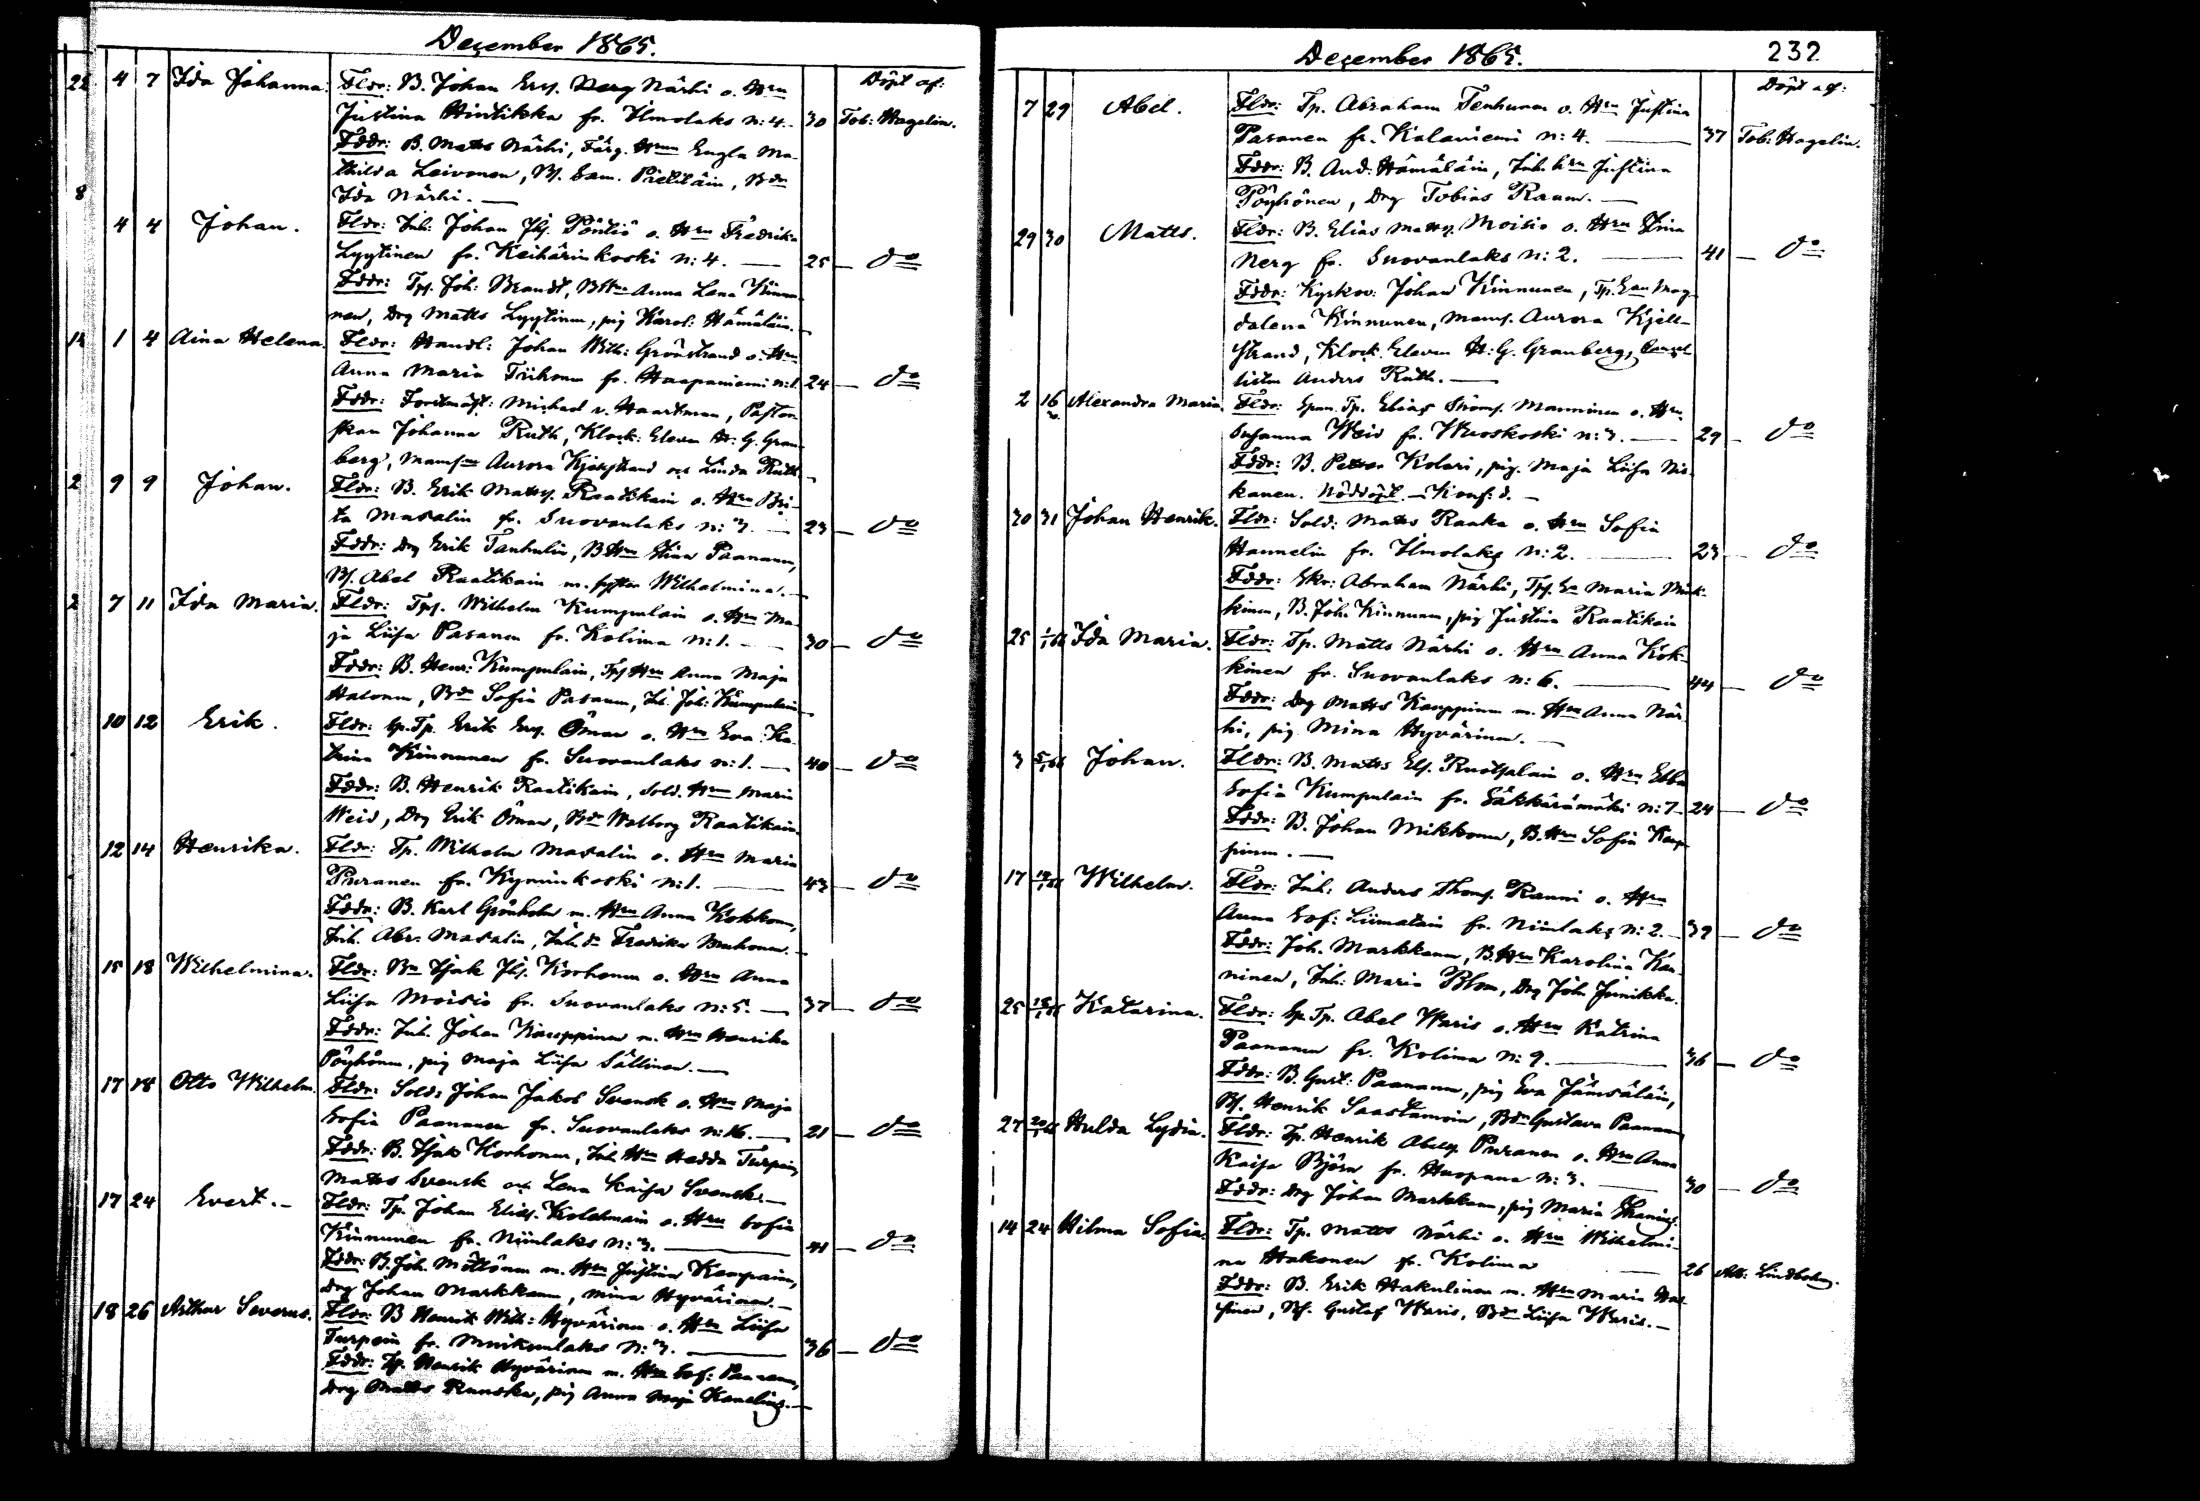 December 1865.
Döpt af:
22 4 7 Ida Johanna. Fldr: B. Johan Ers. Nerg Närhi o. Hru
Justina Hintikka fr. Ilmolaks n:4. 30 Tob: Hagelin.
Fddr: B. Matts Närhi, Färg. Hru Engla Ma-
thilda Leivonen, Bs. Sam. Pietiläin, Bdr
8
Ida Närhi. —
4 4 Johan. Fldr: Inh: Johan Jhs. Pöntiö o. Hru Fredrika
Lyytinen fr. Keihärinkoski n:4. — 25 — do
Fddr: Tps. Joh: Brandt, BHru Anna Lena Kinnu-
nen, Drg Matts Lyytinen, pig Karol: Hämäläin. —
14 1 4 Aina Helena. Fldr: Handl: Johan Wilh: Grönstrand o. Hru
Anna Maria Tiihonen fr. Haapaniemi n:1. 24 — do
Fddr: Forstmäst: Michael v. Haartman, Paston
skan Johanna Ruth, Klock: Eleven H: G. Gran-
berg, Mamsr Aurora Kjellstrand och Linda Ruth. —
2 9 9 Johan. Fldr: B. Erik Matts. Raatikain o. Hru Bri-
ta Masalin fr. Suovanlaks n:3. — 23 — do
Fddr: Drg Erik Tanhulin, BHru Stina Paananen,
Bs. Abel Raatikain m. syster Wilhelmina. —
2 7 11 Ida Maria. Fldr: Tps. Wilhelm Kumpulain o. Hru Ma-
ja Liisa Pasanen fr. Kolima n:1. — 30 — do
Fddr: B. Henr: Kumpulain, Tps Hru Anna Maja
Halonen, Bdr Sofia Pasanen, Joh: Kumpulain —
10 12 Erik. Fldr: Sp. Tp. Erik Ers. Öman o. Hru Eva Ka-
trina Kinnunen fr. Suovanlaks n:1. — 40 — do
Fddr: B. Henrik Raatikain, Sold. Hru Maria
Weid, Drg Erik Öman, Bdr Walborg Raatikain.
12 14 Henrika. Fldr: Tp. Wilhelm Masalin o. Hru Maria
Puranen fr. Kyminkoski n:1. — 43 — do
Fddr: B. Karl Grönholm m. Hru Anna Kokkonen,
Inh. Abr. Masalin, Inh. dr Fredrika Muhonen. —
15 18 Wilhelmina. Fldr: Bn Isak Jhs. Korhonen o. Hru Anna
Liisa Moisio fr. Suovanlaks n:5. — 37 — do
Fddr: Inh. Johan Kauppinen m. Hru Henrika
Pöyhönen, pig Maja Liisa Sällinen. —
17 18 Otto Wilhelm. Fldr: Sold: Johan Jakob Svensk o. Hru Maja
Sofia Paananen fr. Suovanlaks n:16. — 21 — do
Fddr: B. Isak Korhonen, Inh Hru Hedda Turpein,
Matts Svensk och Lena Kaisa Svensk. —
17 24 Evert. — Fldr: Tp. Johan Elias. Kolehmain o. Hru Sofia
Kinnunen fr. Niinlaks n:3. — 41 — do
Fddr: B. Joh. Möttönen m. Hru Justina Kempain,
Drg Johan Markkanen, Mina Hyvärinen. —
18 26 Arthur Severus. Fldr: B Henrik Wilh: Hyvärinen o. Hru Liisa
Turpein fr. Muikunlaks n:3. — 36 — do
Fddr: Tp. Henrik Hyvärinen m. Hru Sof: Paananen,
Drg Matts Ranska, pig Anna Maja Kanelius. —
December 1865. 232
Döpt af:
7 29 Abel. Fldr: Tp. Abraham Tenhunen o. Hru Justina
Pasanen fr. Kalaniemi n:4. — 37 Tob: Hagelin.
Fddr: B. And: Hämäläin, Inh. hru Justina
Pöyhönen, Drg Tobias Raum. —
29 30 Matts. Fldr: B. Elias Matts. Moisio o. Hru Stina
Nerg fr. Suovanlaks n:2. — 41 — do
Fddr: Kyrkov: Johan Kinnunen, Tp. Ean Mag-
dalena Kinnunen, Mams. Aurora Kjell-
strand, Klock. Eleven H: G. Granberg,
Anders Ruth. —
2 16 Alexandra Maria. Fldr: Span. Tp. Elias Thoms. Manninen o. Hru
Susanna Weid fr. Wuoskoski n:3. — 29 — do
Fddr: B. Petter Kolari, pig. Maja Liisa Nis-
kanen. Nöddöpt. — Konf: d. —
30 31 Johan Henrik. Fldr: Sold: Matts Raaka o. Hru Sofia
Hannelin fr. Ilmolaks n:2. — 23 — do
Fddr: Skr: Abraham Närhi, Tps. En Maria Min-
kinen, B. Joh: Kinnunen, pig Justina Raatikain
25 1/1 66 Ida Maria. Fldr: Tp. Matts Närhi o. Hru Anna Kok-
kinen fr. Suovanlaks n:6. — 44 — do
Fddr: Drg Matts Kauppinen m. Hru Anna När-
hi, pig Mina Hyvärinen. —
3 5/1 66 Johan. Fldr: B. Matts Els. Ruotsalain o. Hru Ebba
Sofia Kumpulain fr. Säkkärämäki n:7. 24 — do
Fddr: B. Johan Mikkonen, B. Hru Sofia Kaup-
pinen. —
17 Wilhelm. Fldr: Inh: Anders Thoms. Ranni o. Hru
Anna Sof: Liimatain fr. Niinlaks n:2. — 39 — do
Fddr: Joh. Markkanen, B. Hru Karolina Kan-
ninen, Inh: Maria Blom, Drg Joh: Junikka.
25 Katarina. Fldr: Sp. Tp. Abel Waris o. Hru Katrina
Paananen fr. Kolima n:9. — 36 — do
Fddr: B. Gust: Paananen, pig Eva Jämsäläin,
Bs. Henrik Saastamoin, Bdr Gustava Paananen
27 20/1 66 Hulda Lydia. Fldr: Tp. Henrik Abels. Puranen o. Hru Anna
Kaisa Björn fr. Huopana n:3. — 30 — do
Fddr: Drg Johan Markkanen, pig Maria
14 24 Hilma Sofia. Fldr: Tp. Matts Närhi o. Hru Wilhelmi-
na Hakonen fr. Kolima — 26 Alb: Lindholm.
Fddr: B. Erik Hakulinen m. Hru Maria Hak-
Bs. Gustaf Waris, Bdr Liisa Waris. —